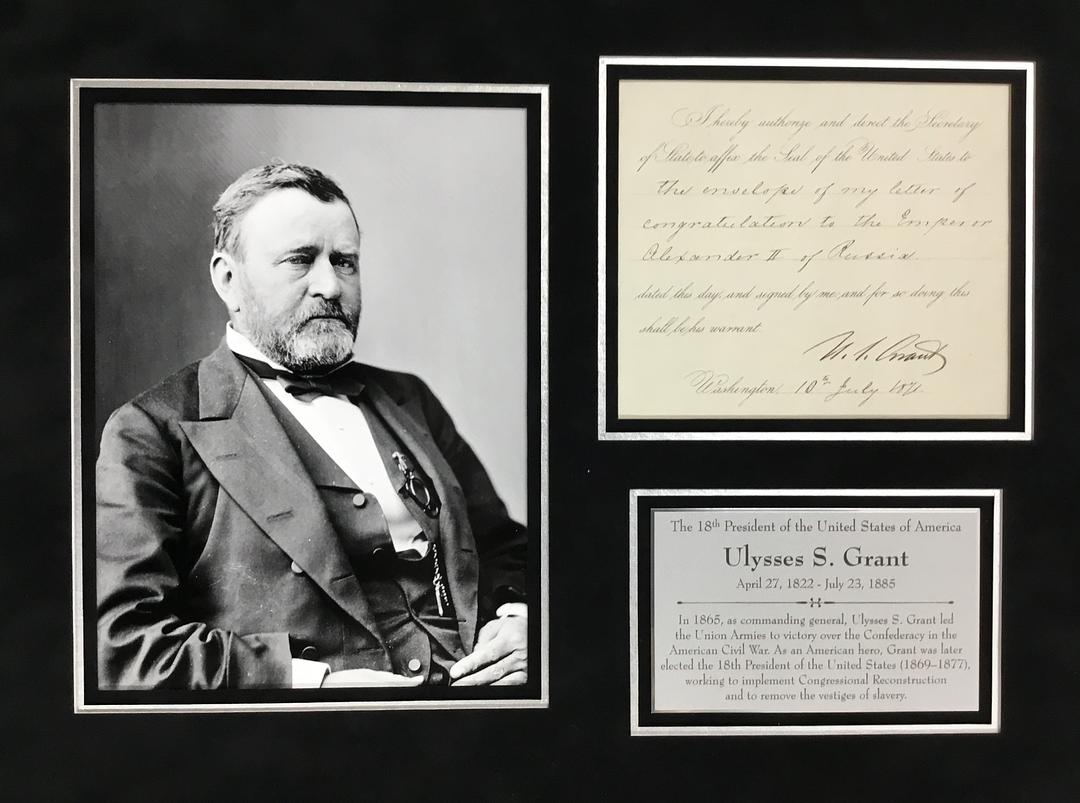 I hereby authorize and direct the Secretary
of State to affix the Seal of the United States to
the envelope of my letter of
congratulation to the Emperor
Alexander II of Russia.
dated this day, and signed by me, and for so doing this
shall be his warrant.
U. S. Grant
Washington, 10th July 1871
The 18th President of the United States of America
Ulysses S. Grant
April 27, 1822 - July 23, 1885
In 1865, as commanding general, Ulysses S. Grant led
the Union Armies to victory over the Confederacy in the
American Civil War. As an American hero, Grant was later
elected the 18th President of the United States (1869–1877),
working to implement Congressional Reconstruction
and to remove the vestiges of slavery.